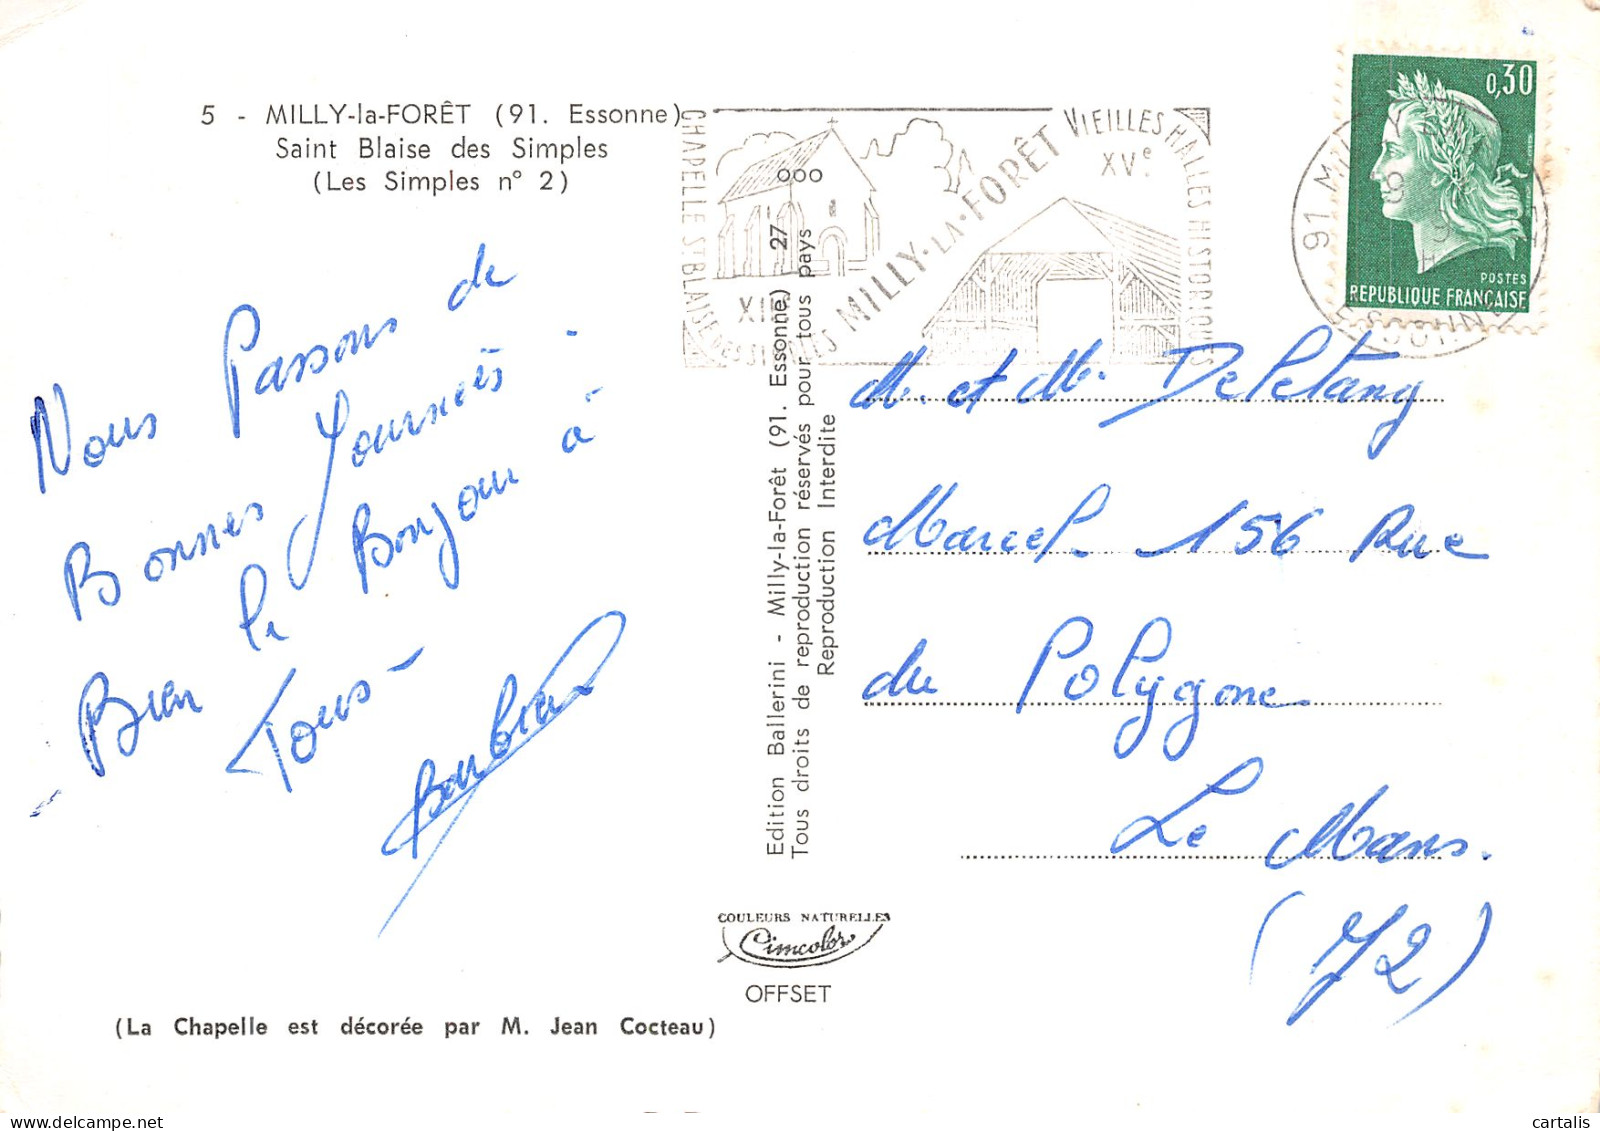 5 - MILLY-la-FORÊT (91. Essonne)
Saint Blaise des Simples
(Les Simples n° 2)
CHAPELLE St BLAISE DES SIMPLES
XIIe
MILLY-LA-FORÊT
VIEILLES HALLES HISTORIQUES
XVe
0,30
POSTES
REPUBLIQUE FRANÇAISE
91 MILLY
ESSONNE
Nous Passons de
Bonnes Journées.
Bien le Bonjour à
Tous-
M. et M. Deletang
Marcel 156 Rue
du Polygone
Le Mans.
(72)
Edition Ballerini - Milly-la-Forêt (91. Essonne) 27 000
Tous droits de reproduction réservés pour tous pays
Reproduction Interdite
COULEURS NATURELLES
Cimcolor
OFFSET
(La Chapelle est décorée par M. Jean Cocteau)
cartalis